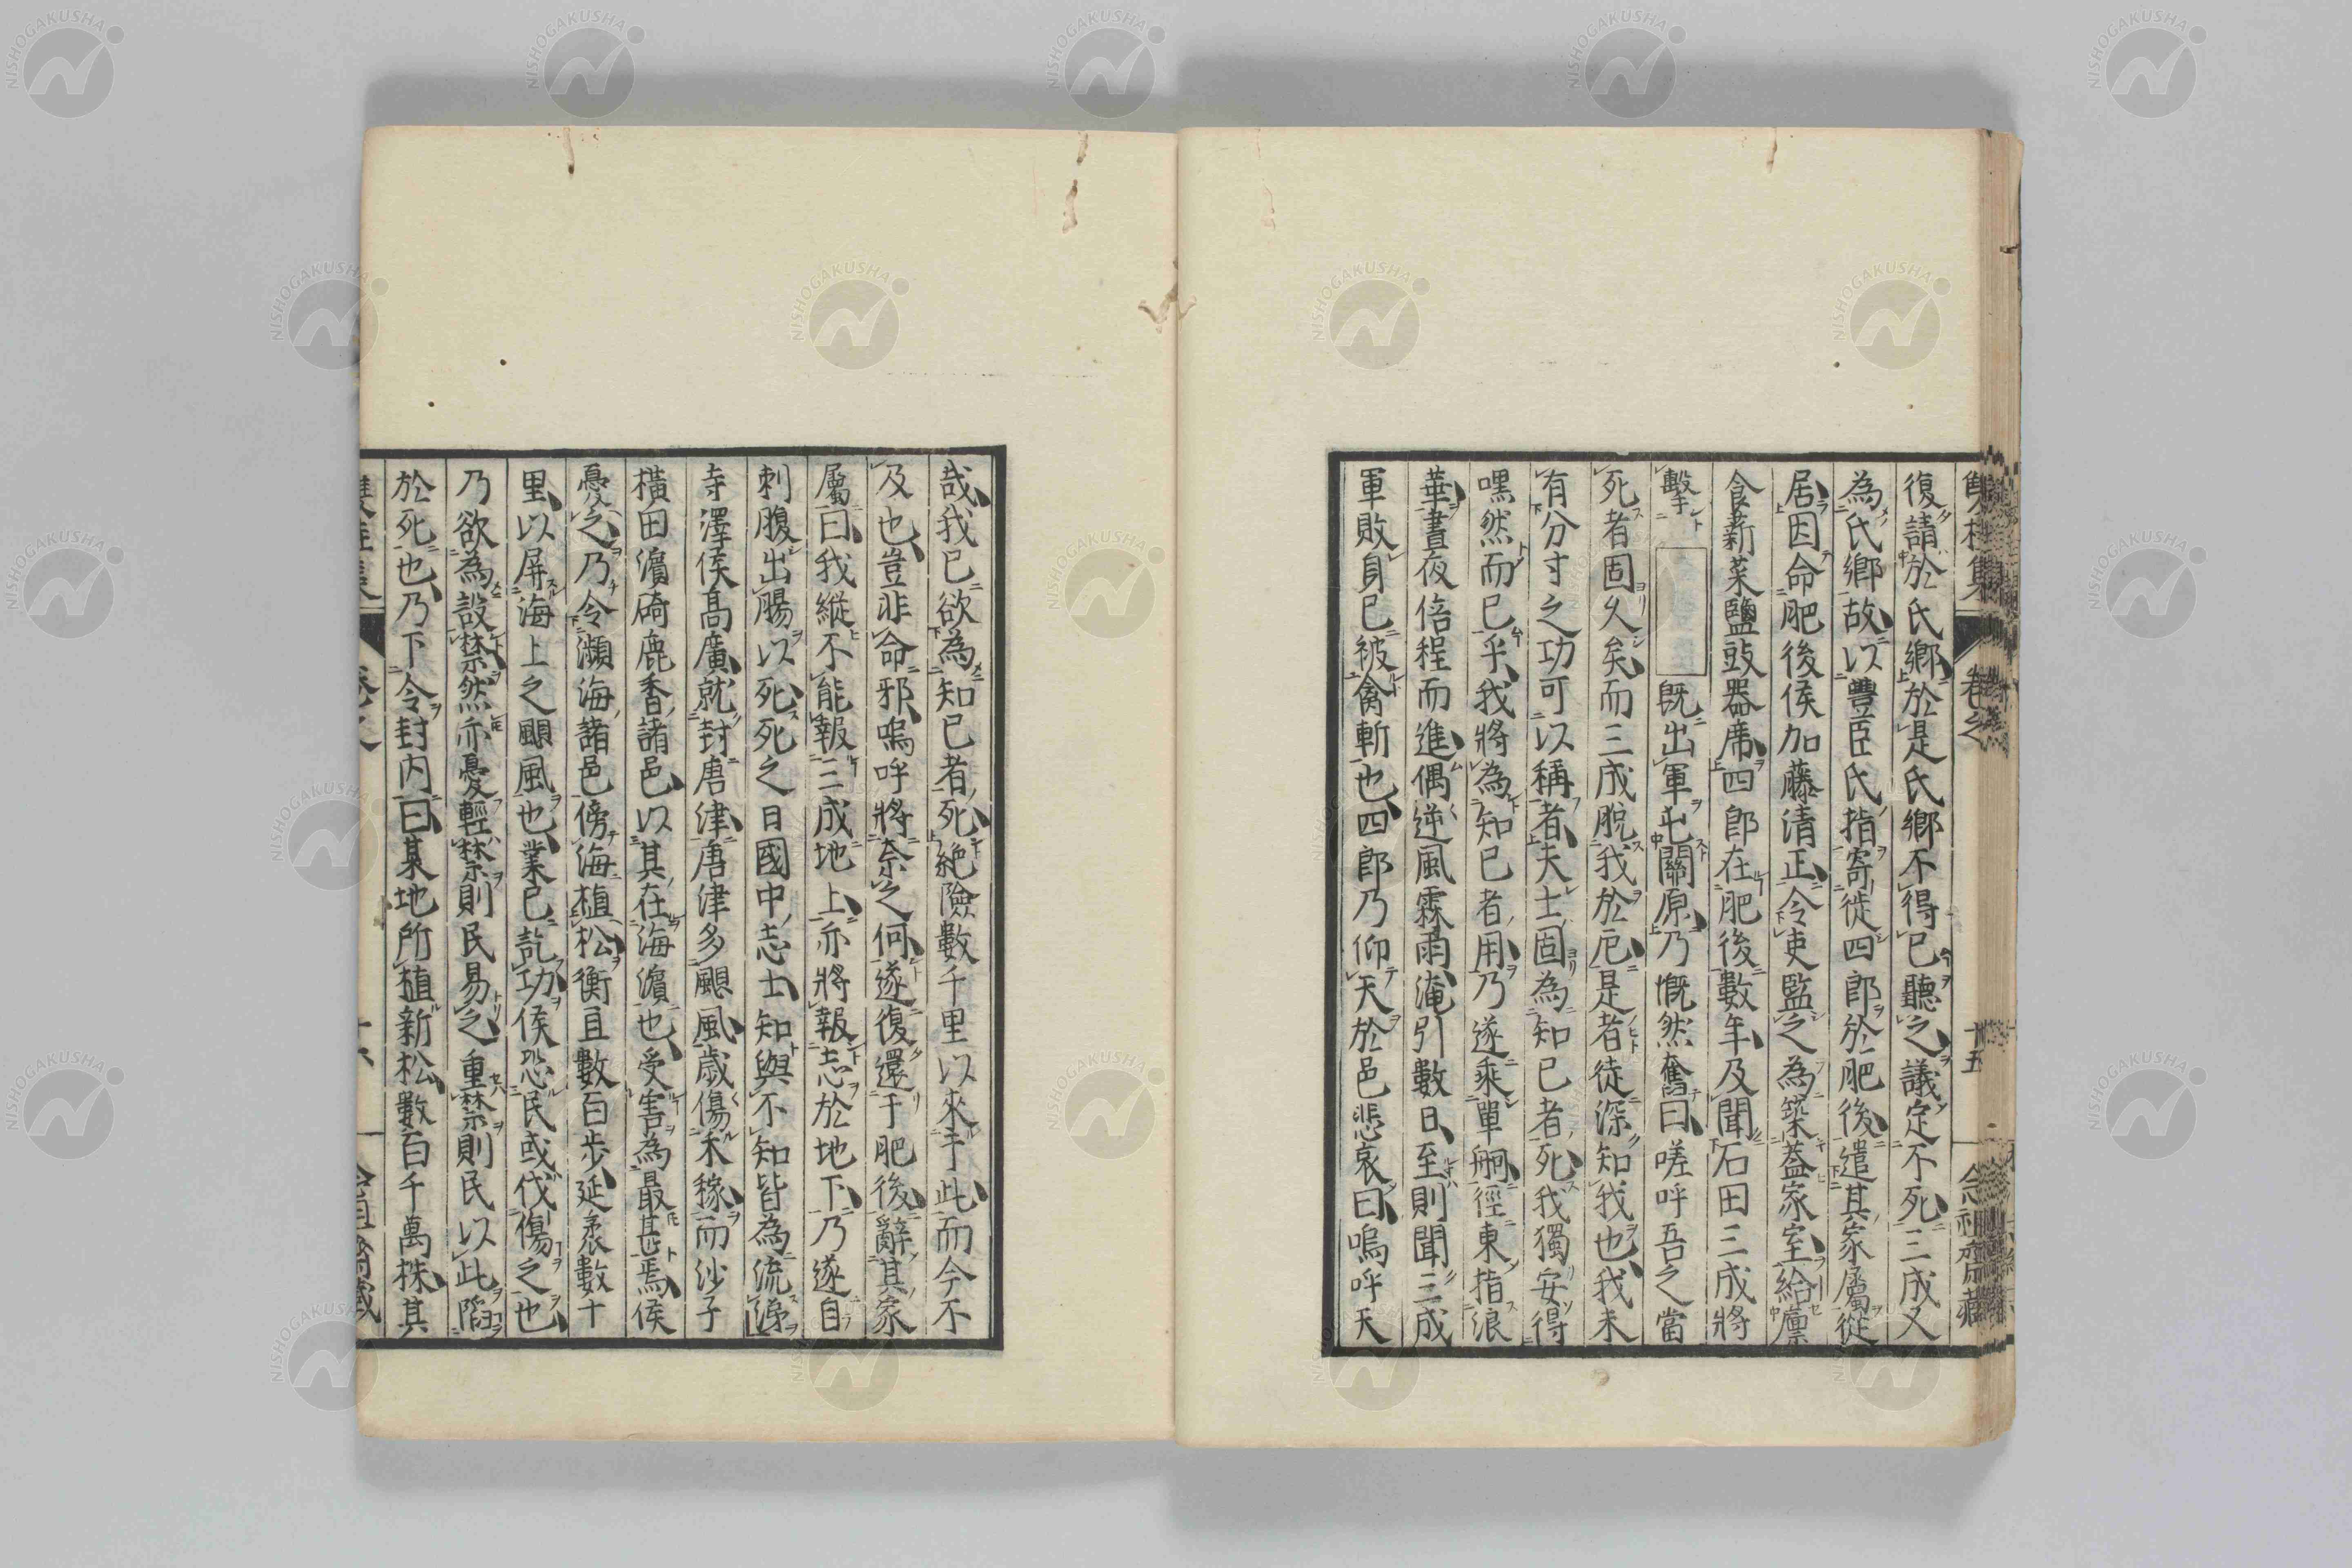 復請於氏鄉於是氏鄉不得已聽之議定不死三成又
為氏鄉故以豐臣氏指寄徙四郎於肥後遣其家屬從
居因命肥後侯加藤清正令吏監之為築蓋家室給廪
食薪菜鹽豉器席四郎在肥後數年及聞石田三成將
擊
既出軍屯關原乃慨然奮曰嗟呼吾之當
死者固久矣而三成脫我於戹是者徒深知我也我未
有分寸之功可以稱者夫士固為知已者死我獨安得
嘿然而已乎我將為知已者用乃遂乘單舸徑東指浪
華晝夜倍程而進偶逆風霖雨淹引數日至則聞三成
軍敗身已被禽斬也四郎乃仰天於邑悲哀曰嗚呼天
哉我已欲為知已者死絕險數千里以來于此而今不
及也豈非命邪嗚呼將奈之何遂復還于肥後辭其家
屬曰我縱不能報三成地上亦將報志於地下乃遂自
刺腹出腸以死死之日國中志士知與不知皆為流涕
寺澤侯高廣就封唐津唐津多颶風歲傷禾稼而沙子
橫田濵碕鹿香諸邑以其在海濵也受害為最甚焉侯
憂之乃令瀕海諸邑傍海植松衡亘數百步延袤數十
里以屏海上之颶風也業已訖功侯恐民或伐傷之也
乃欲為設禁然亦憂輕禁則民易之重禁則民以此陷
於死也乃下令封内曰某地所植新松數百千萬株其
卷之
廿五
念祖齋藏
NISHOGAKUSHA